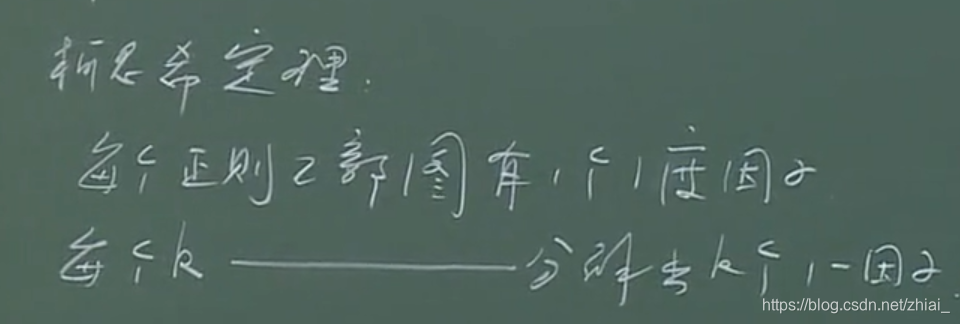 柯尼希定理:
每个正则2部图有1个1度因子
每个k——————分解出k个1-因子.
https://blog.csdn.net/zhiai_